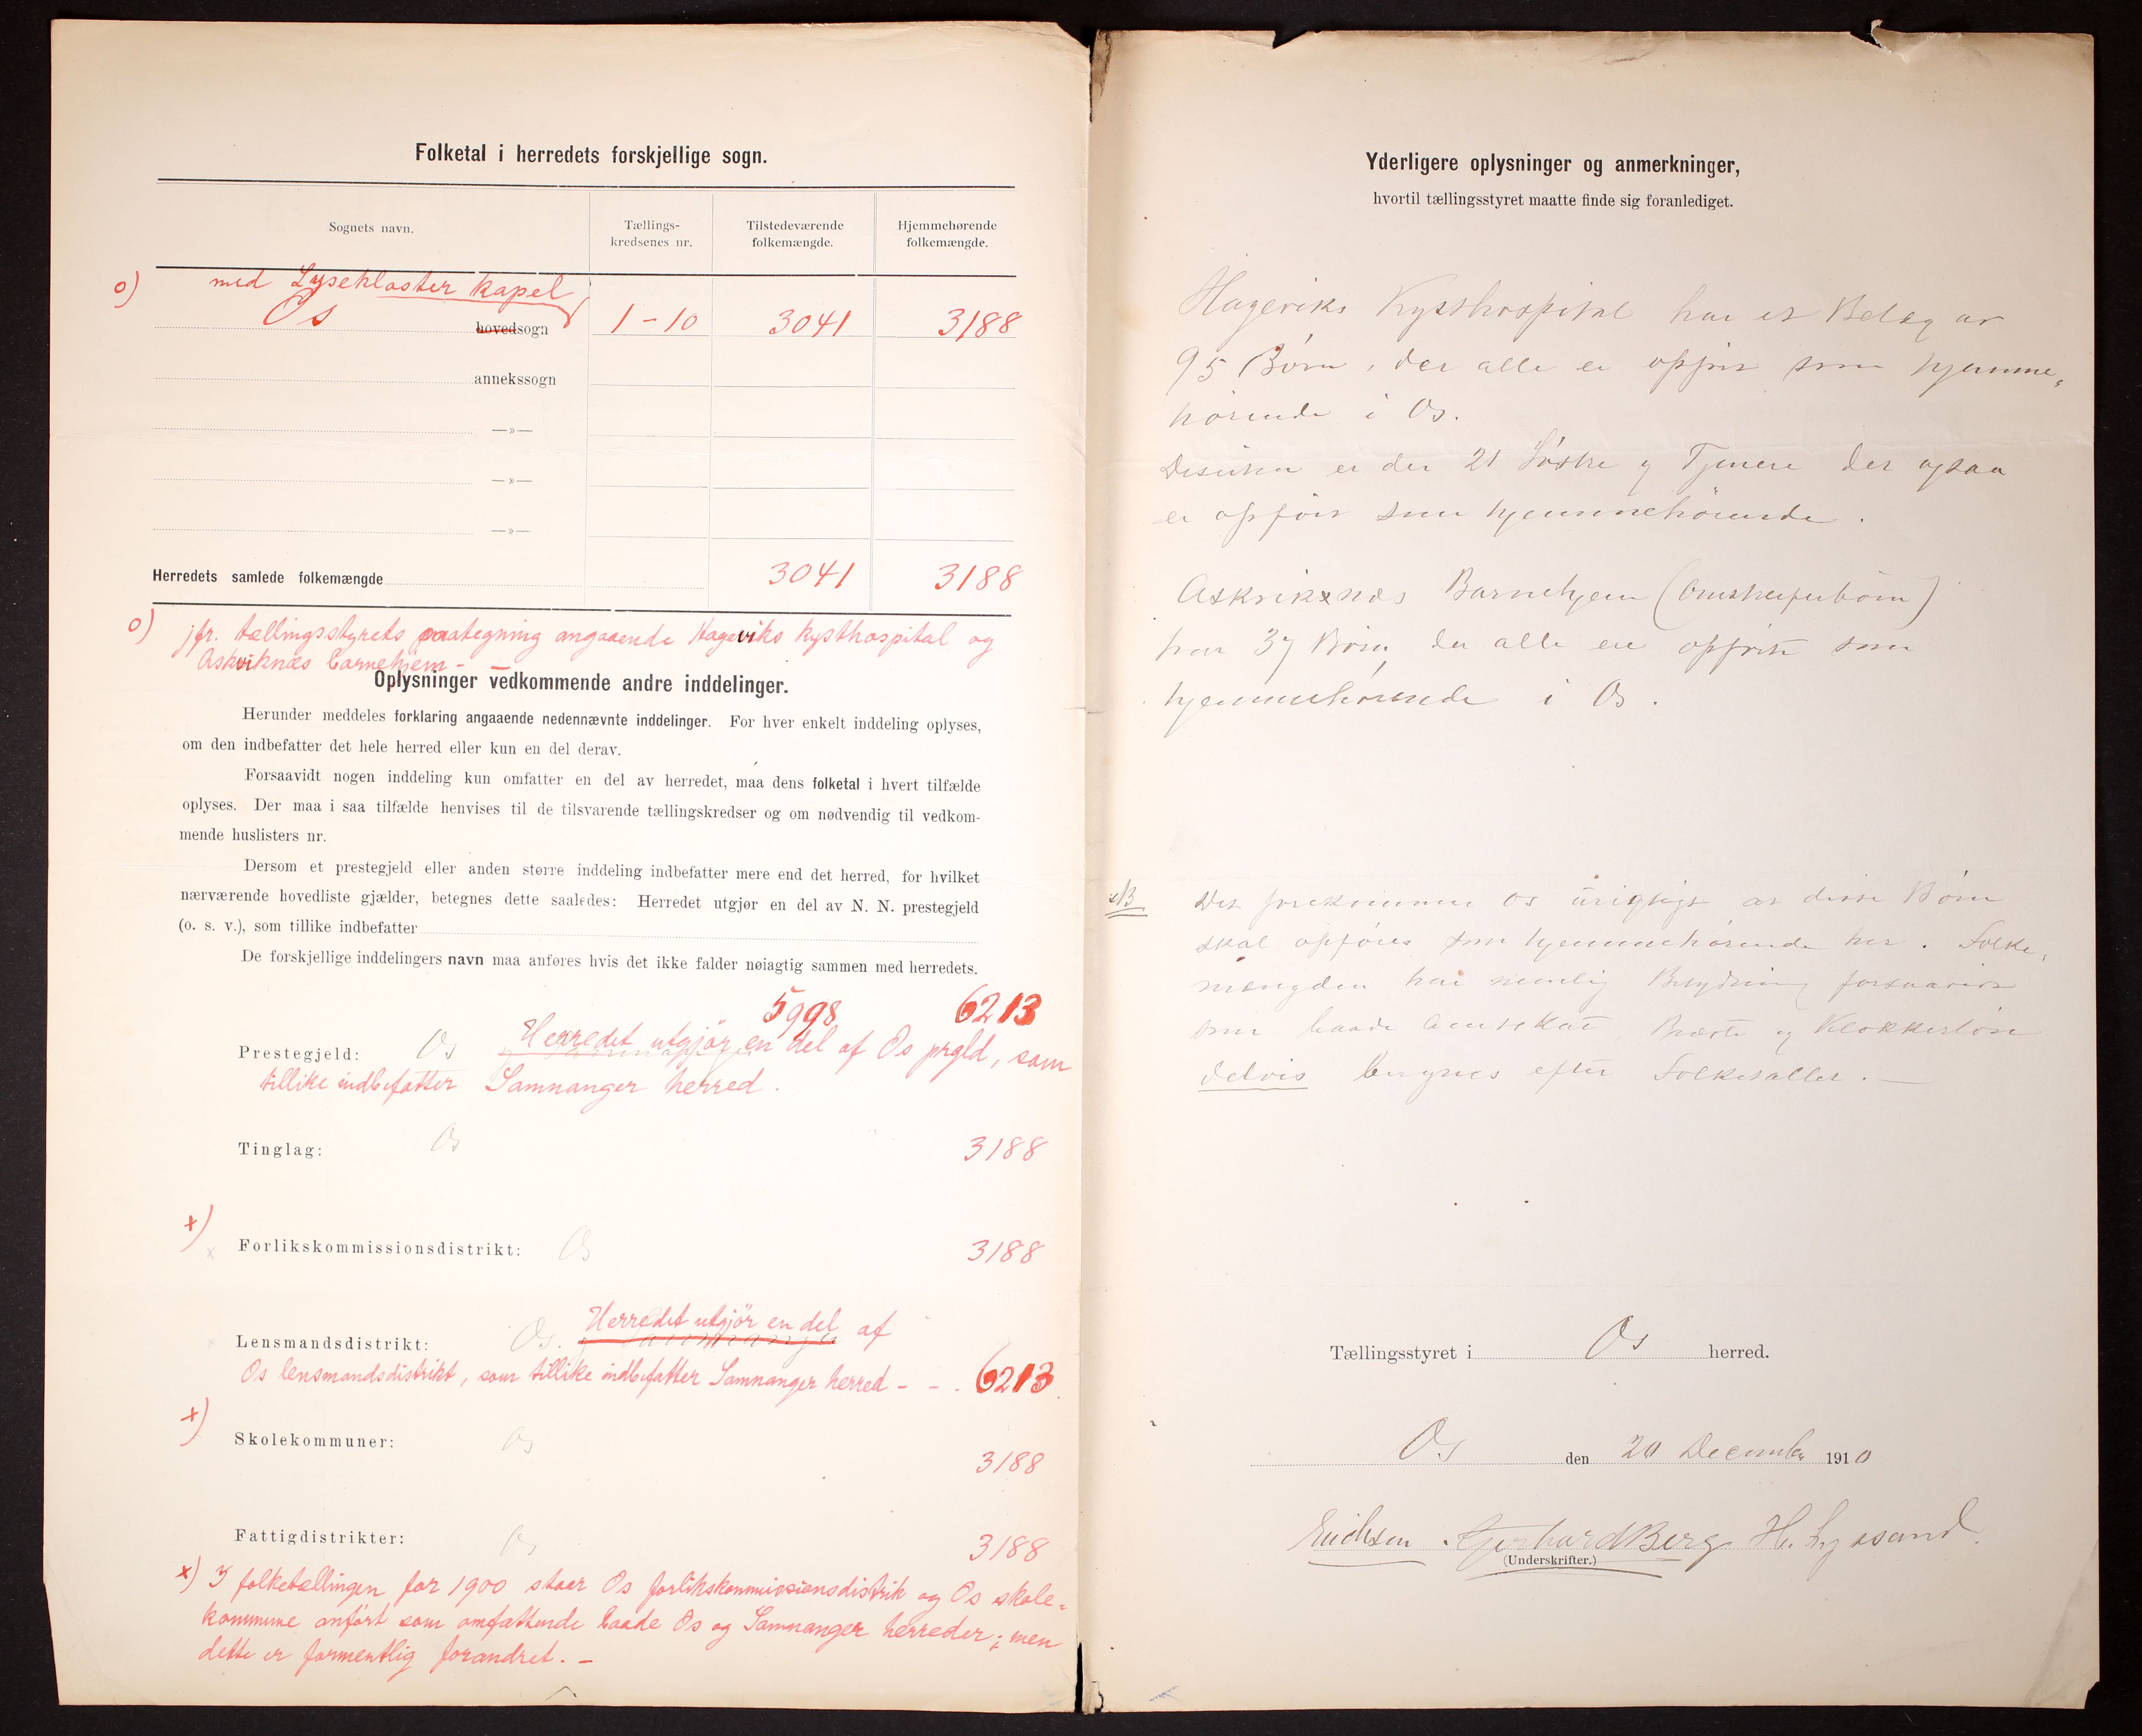 Folketal i herredets forskjellige sogn.
Sognets navn.
Tællings-
kredsenes nr.
Tilstedeværende
folkemængde.
Hjemmehørende
folkemængde.
o) med Lysekloster kapel
Os hovedsogn 1-10 3041 3188
annekssogn
—»—
—»—
—»—
Herredets samlede folkemængde 3041 3188
o) jfr. tællingsstyrets paategning angaaende Hageviks kysthospital og
Askviknæs barnehjem -
Oplysninger vedkommende andre inddelinger.
Herunder meddeles forklaring angaaende nedennævnte inddelinger. For hver enkelt inddeling oplyses,
om den indbefatter det hele herred eller kun en del derav.
Forsaavidt nogen inddeling kun omfatter en del av herredet, maa dens folketal i hvert tilfælde
oplyses. Der maa i saa tilfælde henvises til de tilsvarende tællingskredser og om nødvendig til vedkom-
mende huslisters nr.
Dersom et prestegjeld eller anden større inddeling indbefatter mere end det herred, for hvilket
nærværende hovedliste gjælder, betegnes dette saaledes: Herredet utgjør en del av N. N. prestegjeld
(o. s. v.), som tillike indbefatter
De forskjellige inddelingers navn maa anføres hvis det ikke falder nøiagtig sammen med herredets.
5998 6213
Prestegjeld: Os Herredet utgjör en del af Os prgld, som
tillike indbefatter Samnanger herred.
Tinglag: Os 3188
+)
x Forlikskommissionsdistrikt: Os 3188
Herredet utgjör en del af
Lensmandsdistrikt: Os. g Samnanger
Os lensmandsdistrikt, som tillike indbefatter Samnanger herred - - . 6213
+)
Skolekommuner: Os 3188
Fattigdistrikter: Os 3188
x) I folketællingen for 1900 staar Os forlikskommissionsdistrik og Os skole-
kommune anfört som omfattende baade Os og Samnanger herreder; men
dette er formentlig forandret. -
Yderligere oplysninger og anmerkninger,
hvortil tællingsstyret maatte finde sig foranlediget.
Hageviks Kysthospital har et Belæg av
95 Børn, der alle er opført som hjemme-
hørende i Os.
Desuten er der 21 Søstre og Tjenere der ogsaa
er opført som hjemmehørende.
Askviknæs Barnehjem (Omstreiferbørn)
har 37 Børn, der alle ere opført som
hjemmehørende i Os.
NB Det forekommer os urigtigt at disse Børn
skal opføres som hjemmehørende her. Folke-
mængden har nemlig Betydning forsaavidt
som baade Amtskat, Præste og Klokkerløn
delvis beregnes efter Folketallet. -
Tællingsstyret i Os herred.
Os den 20 December 1910
Erichsen Gerhard Berg H. Lyssand
(Underskrifter.)